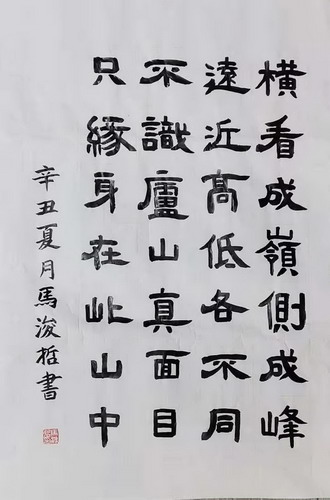 橫看成嶺側成峰
遠近高低各不同
不識廬山真面目
只緣身在此山中
辛丑夏月馬浚哲書